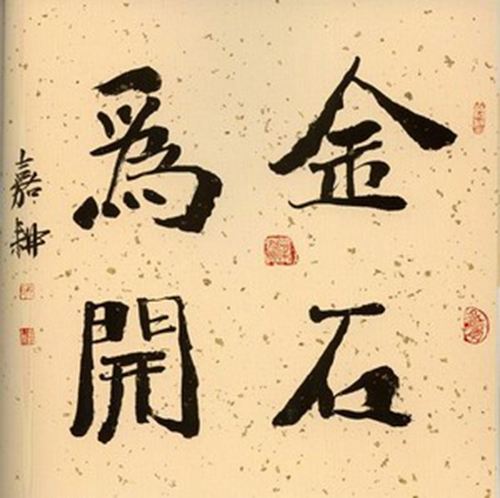 金石
為開
嘉耕